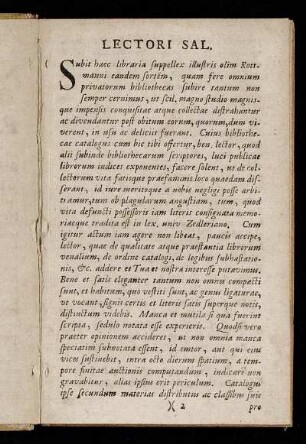 LECTORI SAL.
Subit haec libraria suppellex illustris olim Rott-
manni eandem sortem, quam fere omnium
privatorum bibliothecas subire tantum non
semper cernimus, ut scil. magno studio magnis-
que impensis conquisitae atque collectae distrahantur
ac divendantur post obitum eorum, quorum, dum vi-
verent, in usu ac deliciis fuerant. Cuius bibliothe-
cae catalogus cum hic tibi offertur, ben. lector, quod
alii subinde bibliothecarum scriptores, luci publicae
librorum indices exponentes, facere solent, ut de col-
lectorum vita fatisque praefamina loco quaedam dis-
serant, id iure meritoque a nobis negligi posse arbi-
tramur, tum ob plagularum angustiam, tum, quod
vita defuncti possessoris iam literis consignata memo-
riaeque tradita est in lex. univ. Zedleriano. Cum
igitur actum iam agere non libeat, paucis accipe,
lector, quae de qualitate atque praestantia librorum
venalium, de ordine catalogi, de legibus subhastatio-
nis, &c. addere et Tua et nostra interesse putavimus.
Bene et satis eleganter tantum non omnes compacti
sunt, et habitum, quo vestiti sunt, ac genus ligaturae,
ut vocant, signis certis et literis satis superque notis,
distinctum videbis. Manca et mutila si qua fuerint
scripta, sedulo notata esse experieris. Quodsi vero
praeter opinionem accideret, ut non omnia manca
speciatim subnotata essent, id emtor, aut qui eius
vices sustinebit, intra octo dierum spatium, a tem-
pore finitae auctionis computandum, indicare non
gravabitur, alias ipsius erit periculum. Catalogus
ipse secundum materias distributus ac classibus suis
)( 2 pro